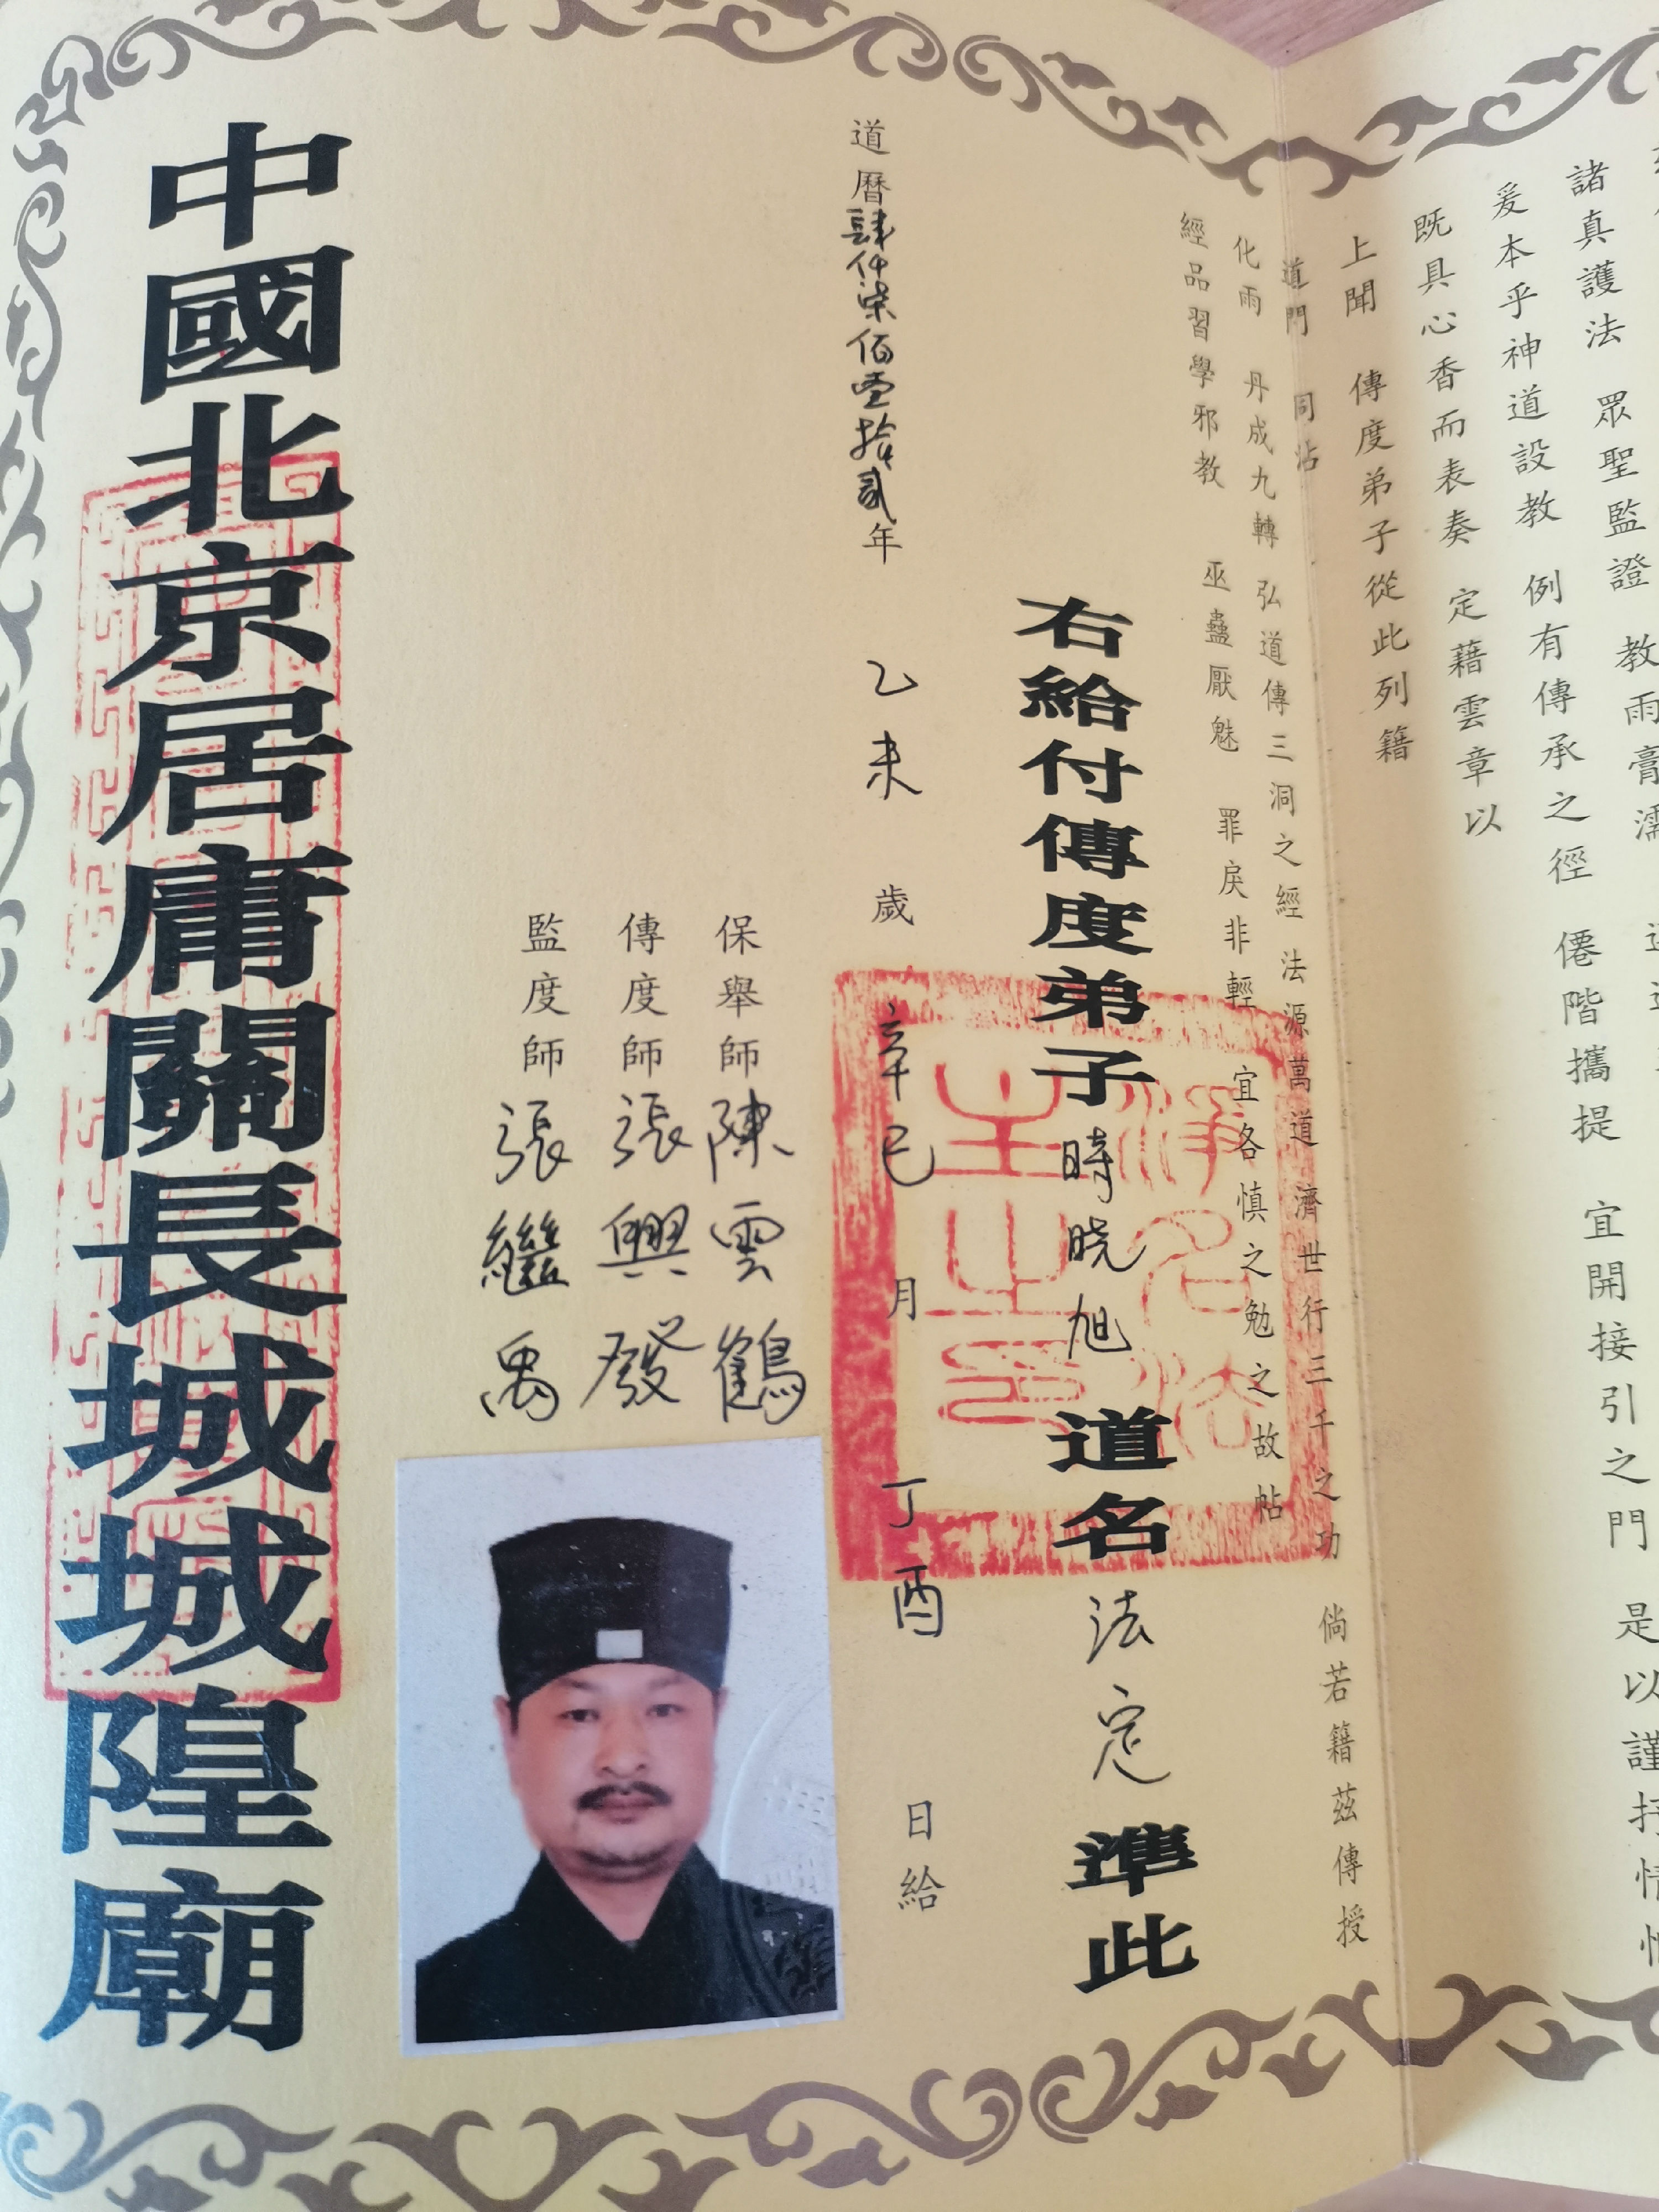 諸真護法　眾聖監證　教雨膏濡
爰本乎神道設教　例有傳承之徑　僊階攜提　宜開接引之門　是以謹抒情
既具心香而表奏　定藉雲章以
上聞　傳度弟子從此列籍
道門　同沾
化雨　丹成九轉　弘道傳三洞之經　法源萬道　濟世行三千之功　倘若籍茲傳授
經品習學邪教　巫蠱厭魅　罪戾非輕　宜各慎之勉之故帖
右給付傳度弟子時晓旭　道名　法定　準此
道曆肆仟柒佰壹拾貳年　乙未　歲　辛巳　月　丁酉　日給
保舉師陳雲鶴
傳度師張興發
監度師張繼禹
中國北京居庸關長城城隍廟